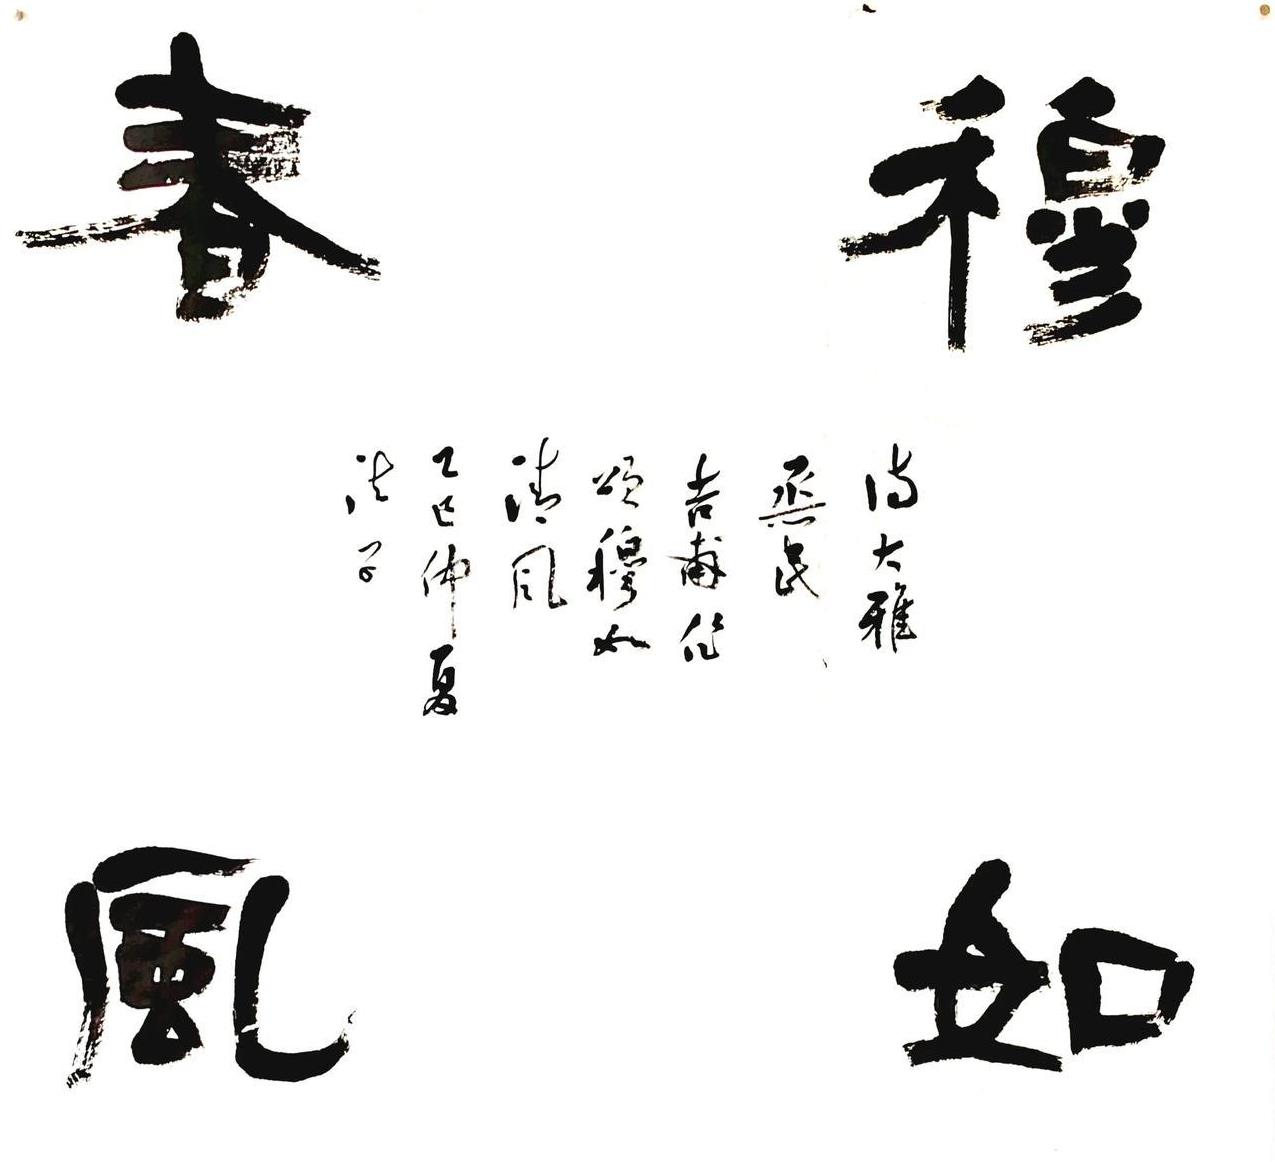 穆如
春風
诗大雅
烝民
吉甫作
頌穆如
清風
乙巳仲夏